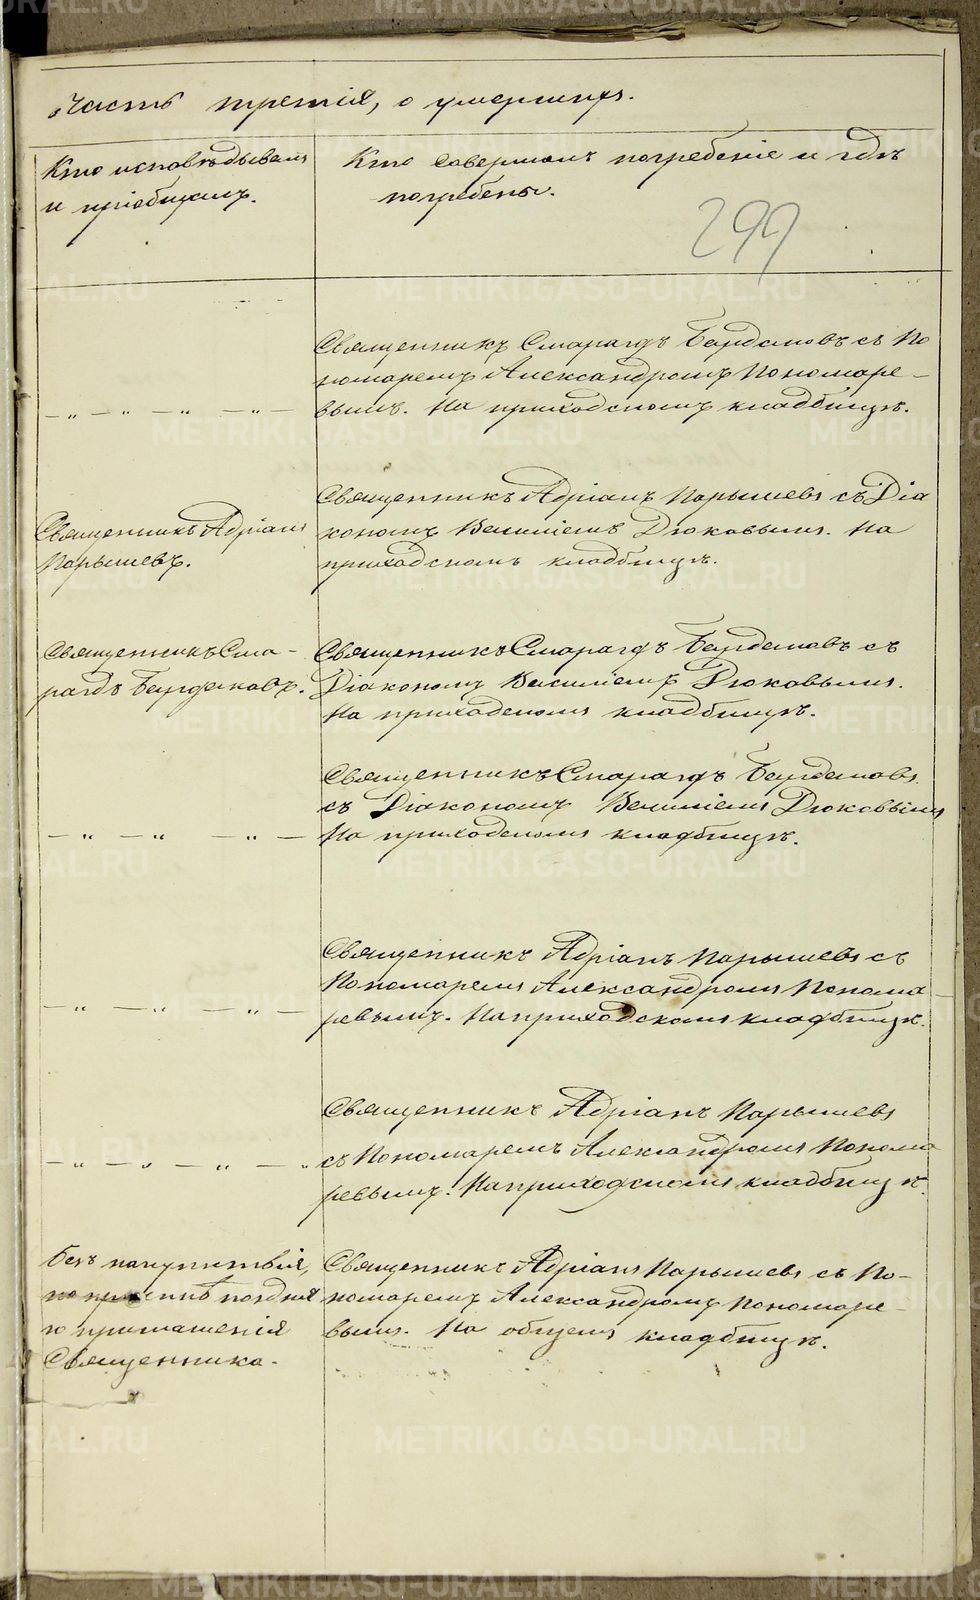 Часть третія, о умершихъ.
Кто исповѣдывалъ
и пріобщалъ.
Кто совершалъ погребеніе и гдѣ
погребены.
299
Священникъ Смарагдъ Бурдаковъ съ По
номаремъ Александромъ Пономаре-
вымъ. На приходскомъ кладбищѣ.
— „ — „ — „ — „ —
Священникъ Адріанъ
Парышевъ.
Священникъ Адріанъ Парышевъ съ Діа
кономъ Василіемъ Дюковымъ. На
приходскомъ кладбищѣ.
Священникъ Сма-
рагдъ Бурдаковъ.
Священникъ Смарагдъ Бурдаковъ съ
Діакономъ Василіемъ Дюковымъ.
На приходскомъ кладбищѣ.
— „ — „ — „ —
Священникъ Смарагдъ Бурдаковъ
съ Діакономъ Василіемъ Дюковымъ
На приходскомъ кладбищѣ.
— „ — „ — „ —
Священникъ Адріанъ Парышевъ съ
Пономаремъ Александромъ Понома-
ревымъ. На приходскомъ кладбищѣ.
— „ — „ — „ — „
Священникъ Адріанъ Парышевъ
съ Пономаремъ Александромъ Понома
ревымъ. На приходскомъ кладбищѣ.
Безъ напутствія,
по причинѣ поздня
го приглашенія
Священника.
Священникъ Адріанъ Парышевъ съ По-
номаремъ Александромъ Пономаре
вымъ. На общемъ кладбищѣ.
METRIKI.GASO-URAL.RU